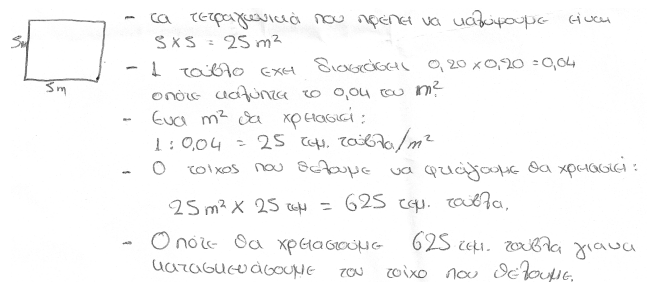 - τα τετραγωνικά που πρέπει να καλύψουμε είναι
5m
5 x 5 = 25 m²
- 1 τούβλο έχει διαστάσει 0,20 x 0,20 = 0,04
5m
οπότε καλύπτει το 0,04 του m².
- Ένα m² θα χρειαστεί:
1 : 0,04 = 25 τεμ. τούβλα/m²
- Ο τοίχος που θέλουμε να φτιάξουμε θα χρειαστεί:
25m² x 25 τεμ = 625 τεμ. τούβλα.
- Οπότε θα χρειαστούμε 625 τεμ. τούβλα για να
κατασκευάσουμε τον τοίχο που θέλουμε.